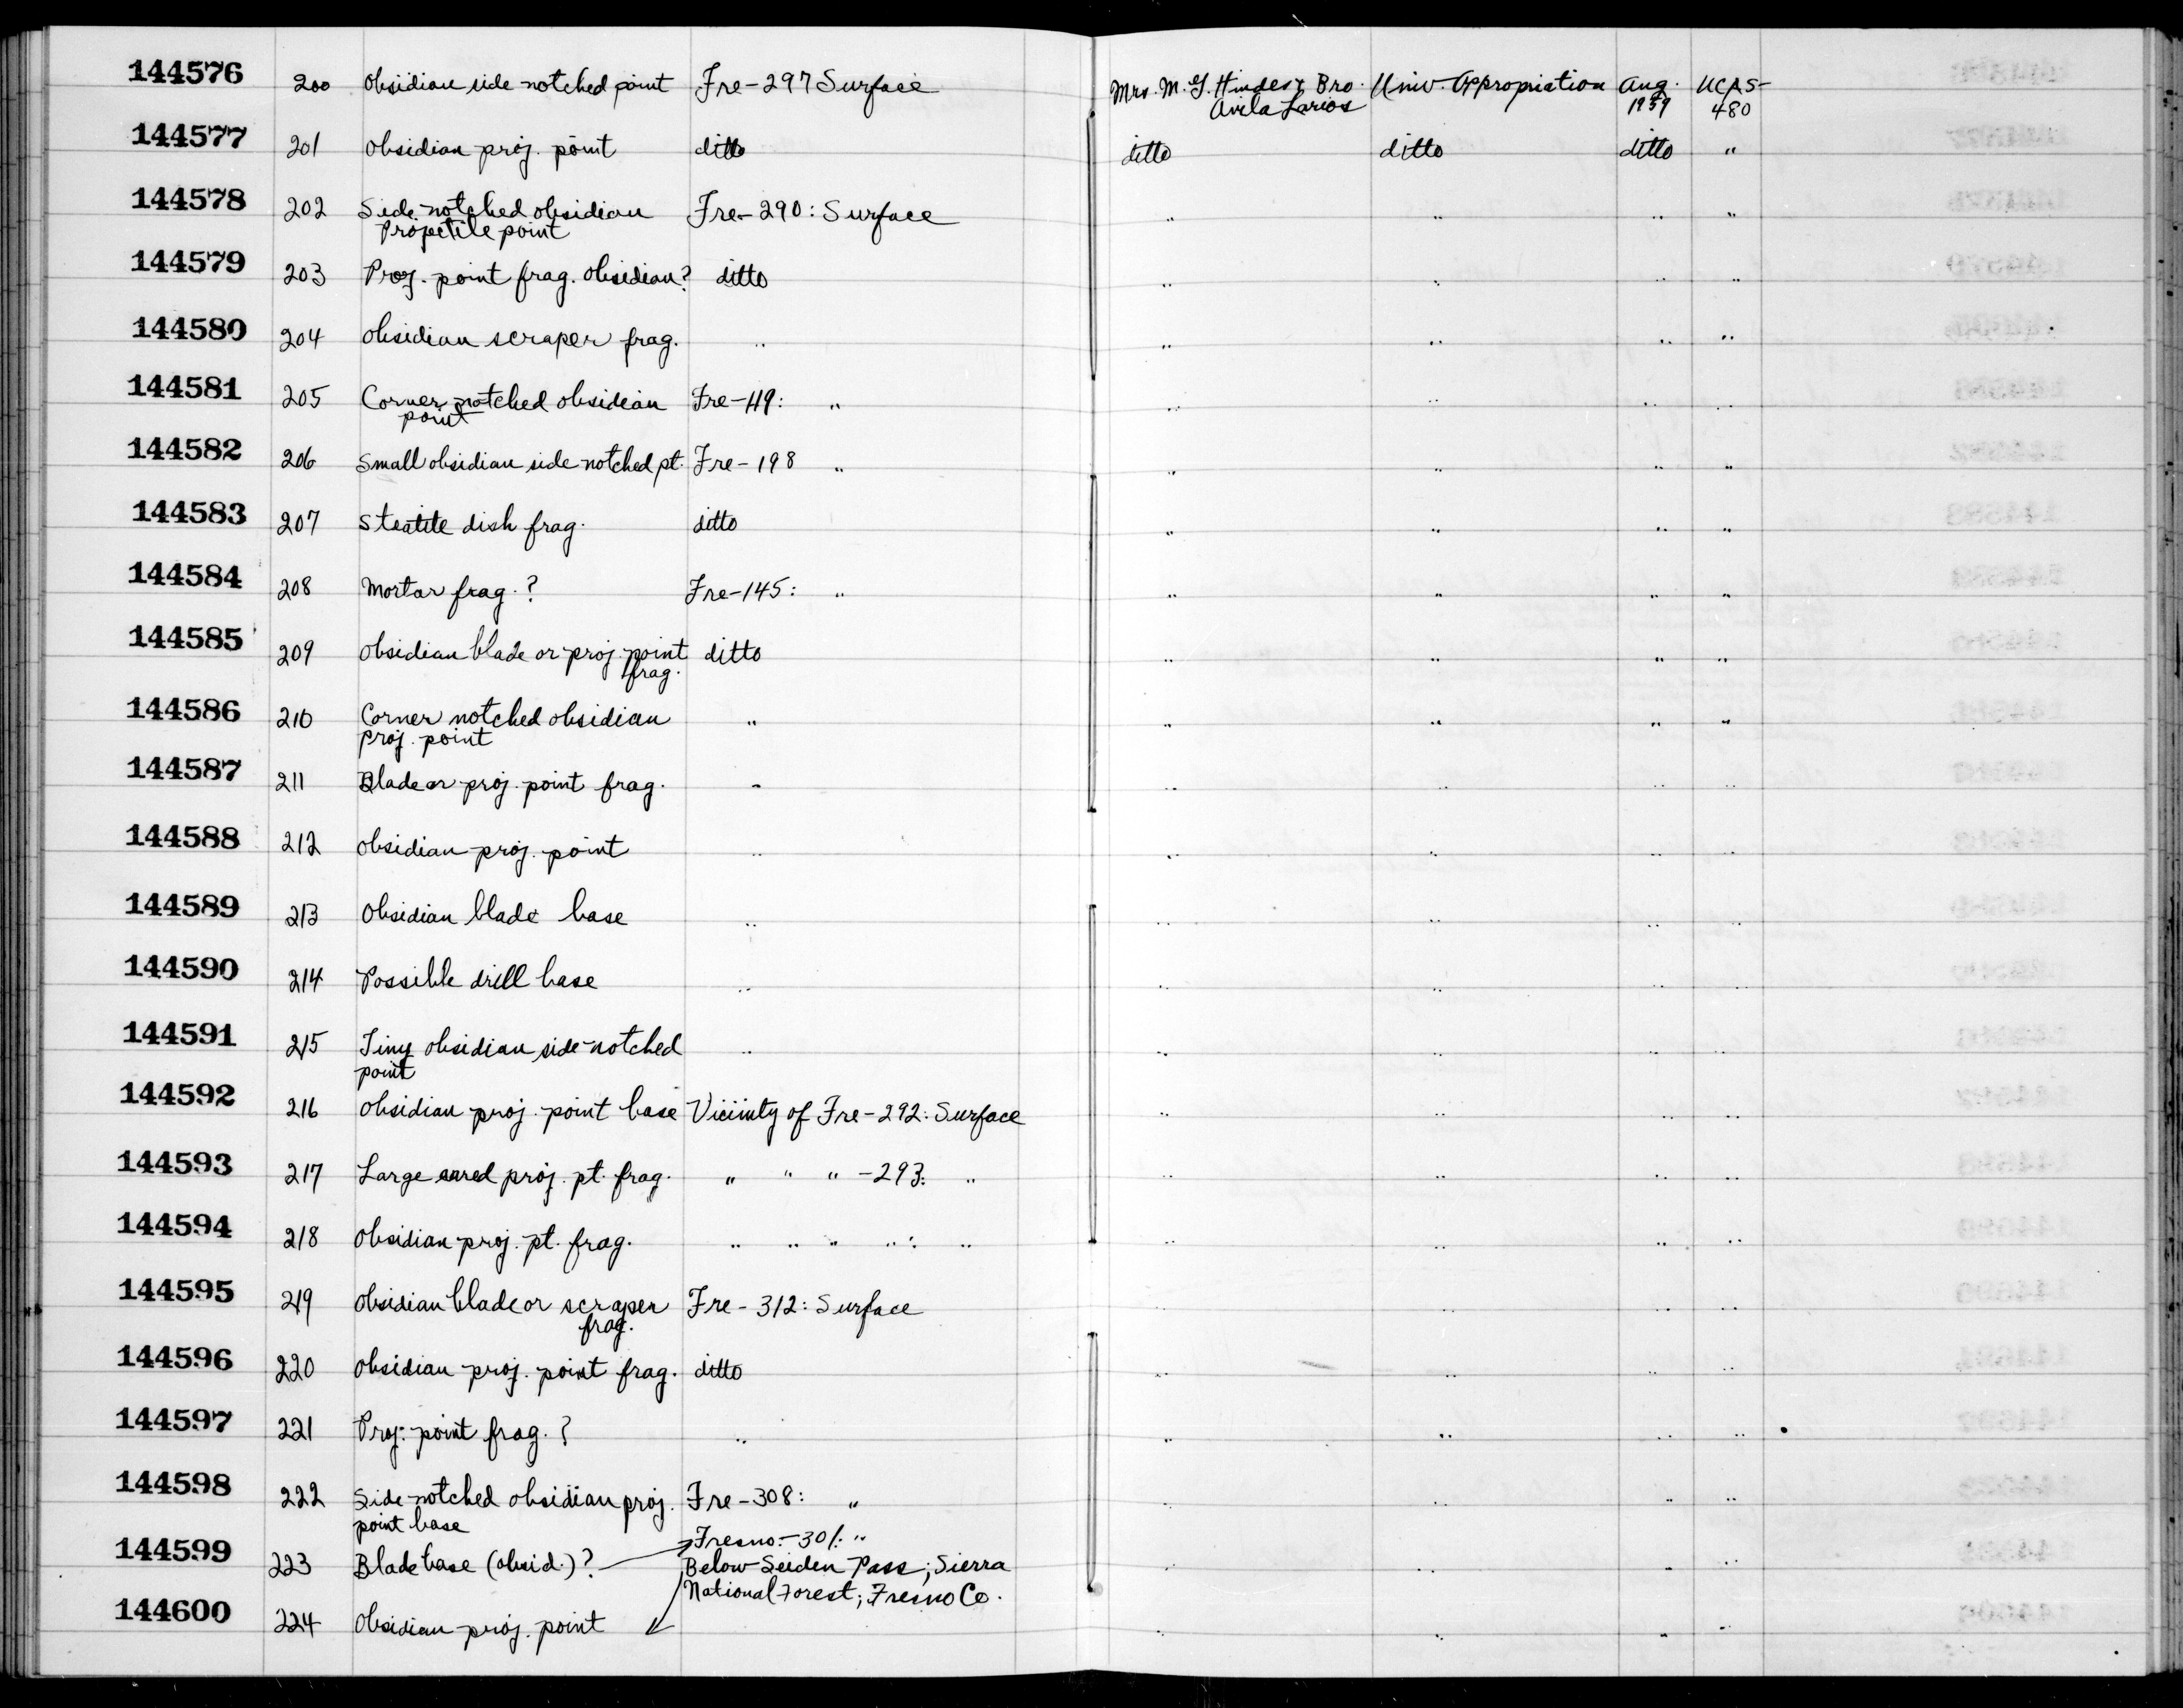 144576 200 Obsidian side notched point Fre-297 Surface Mrs. M. G. Hindes & Bro. Univ. Appropriation Aug. UCAS-
Avila Larios 1959 480
144577 201 Obsidian proj. point ditto ditto ditto ditto "
144578 202 Side-notched obsidian Fre-290: Surface " " " "
Projectile point
144579 203 Proj. point frag. Obsidian? ditto " " " "
144580 204 Obsidian scraper frag. " " " " "
144581 205 Corner notched obsidian Fre-119: " " " " "
point
144582 206 Small obsidian side notched pt. Fre-198 " " " " "
144583 207 Steatite dish frag. ditto " " " "
144584 208 Mortar frag. ? Fre-145: " " " " "
144585 209 Obsidian blade or proj. point ditto " " " "
frag.
144586 210 Corner notched obsidian " " " " "
proj. point
144587 211 Blade or proj. point frag. " " " " "
144588 212 Obsidian proj. point " " " " "
144589 213 Obsidian blade base " " " " "
144590 214 Possible drill base " " " " "
144591 215 Tiny obsidian side-notched " " " " "
point
144592 216 Obsidian proj. point base Vicinity of Fre-292: Surface " " " "
144593 217 Large eared proj. pt. frag. " " " -293: " " " " "
144594 218 Obsidian proj. pt. frag. " " " ": " " " " "
144595 219 Obsidian blade or scraper Fre-312: Surface " " " "
frag.
144596 220 Obsidian proj. point frag. ditto " " " "
144597 221 Proj. point frag. ? " " " " "
144598 222 Side-notched obsidian proj. Fre-308: " " " " "
point base
Fresno.-301: "
144599 223 Blade base (obsid.)? Below Seiden Pass; Sierra " " " "
National Forest; Fresno Co.
144600 224 Obsidian proj. point " " " "